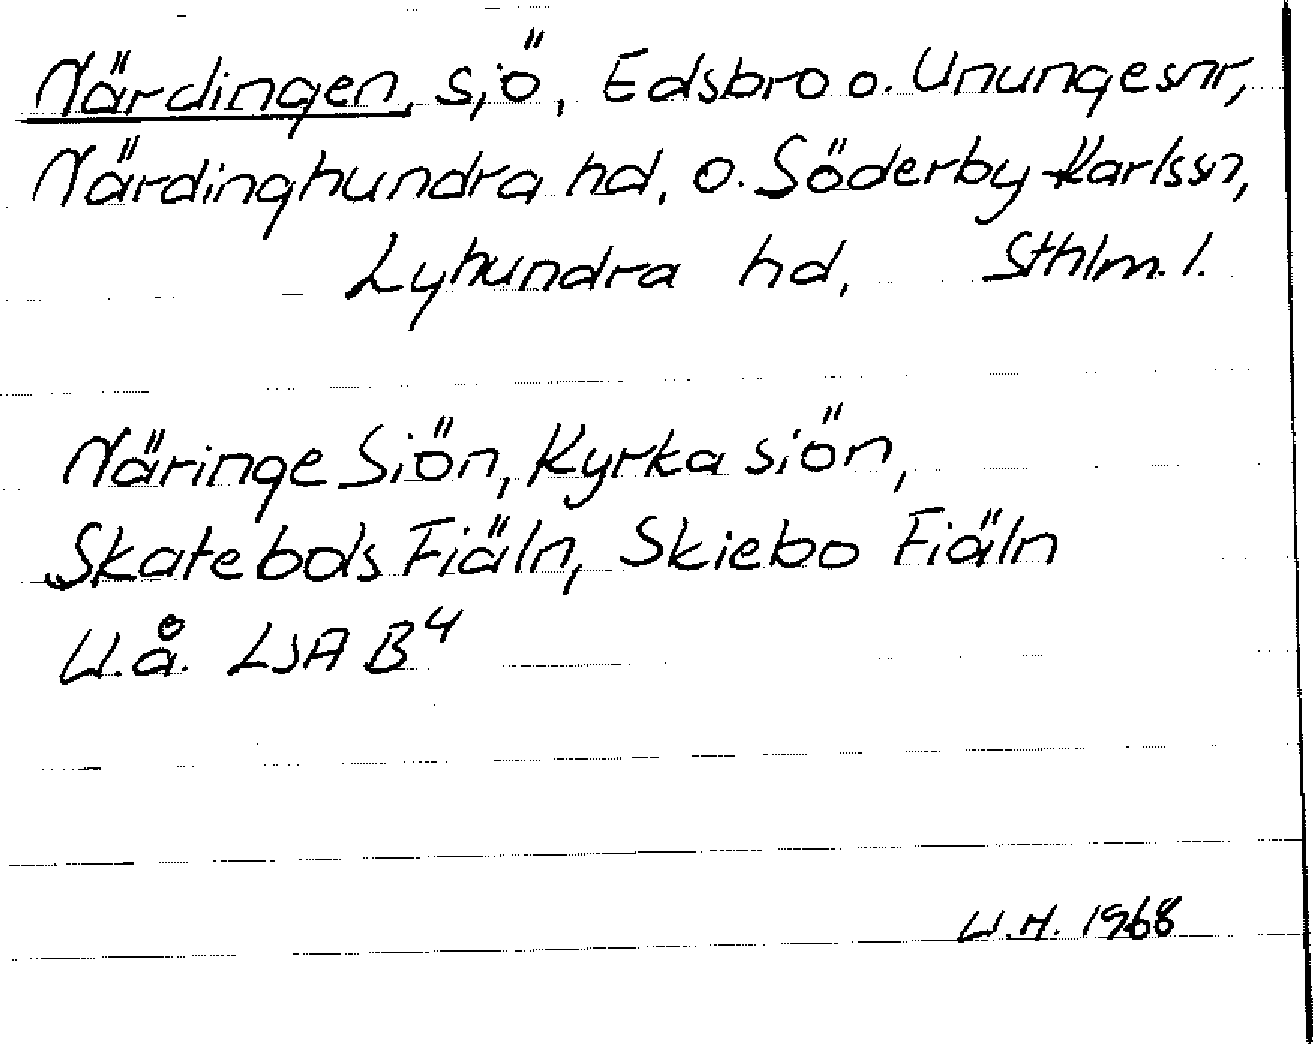 Närdingen, sjö, Edsbro o. Ununge snr,
Närdinghundra hd, o. Söderby-Karls sn,
Lyhundra hd, Sthlm. l.
Näringe Siön, Kyrka siön,
Skatebols Fiäln, Skiebo Fiäln
U.å. LSA B4
U.H. 1968